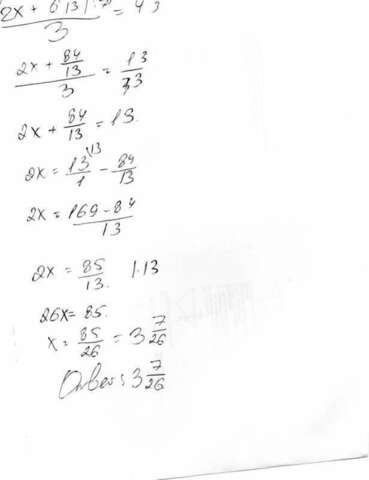 2x + 6
3
2x + 84/13 / 3 = 13/3
2x + 84/13 = 13.
2x = 13/1 \13 - 84/13
2x = 169 - 84 / 13
2x = 85/13. | · 13
26x = 85.
x = 85/26 = 3 7/26
Ответ: 3 7/26